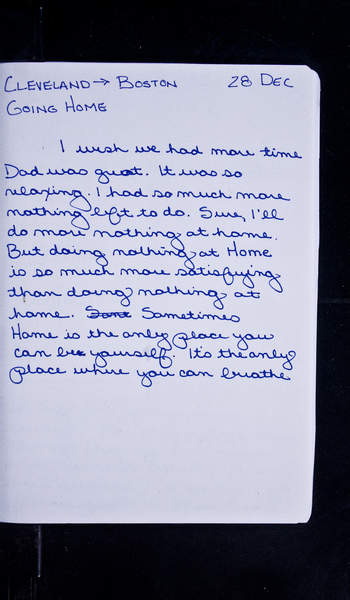 CLEVELAND → BOSTON 28 DEC
GOING HOME
I wish we had more time
Dad was great. It was so
relaxing. I had so much more
nothing left to do. Sure, I'll
do more nothing at home.
But doing nothing at Home
is so much more satisfying
than doing nothing at
home. Sometimes
Home is the only place you
can be yourself. It's the only
place where you can breathe